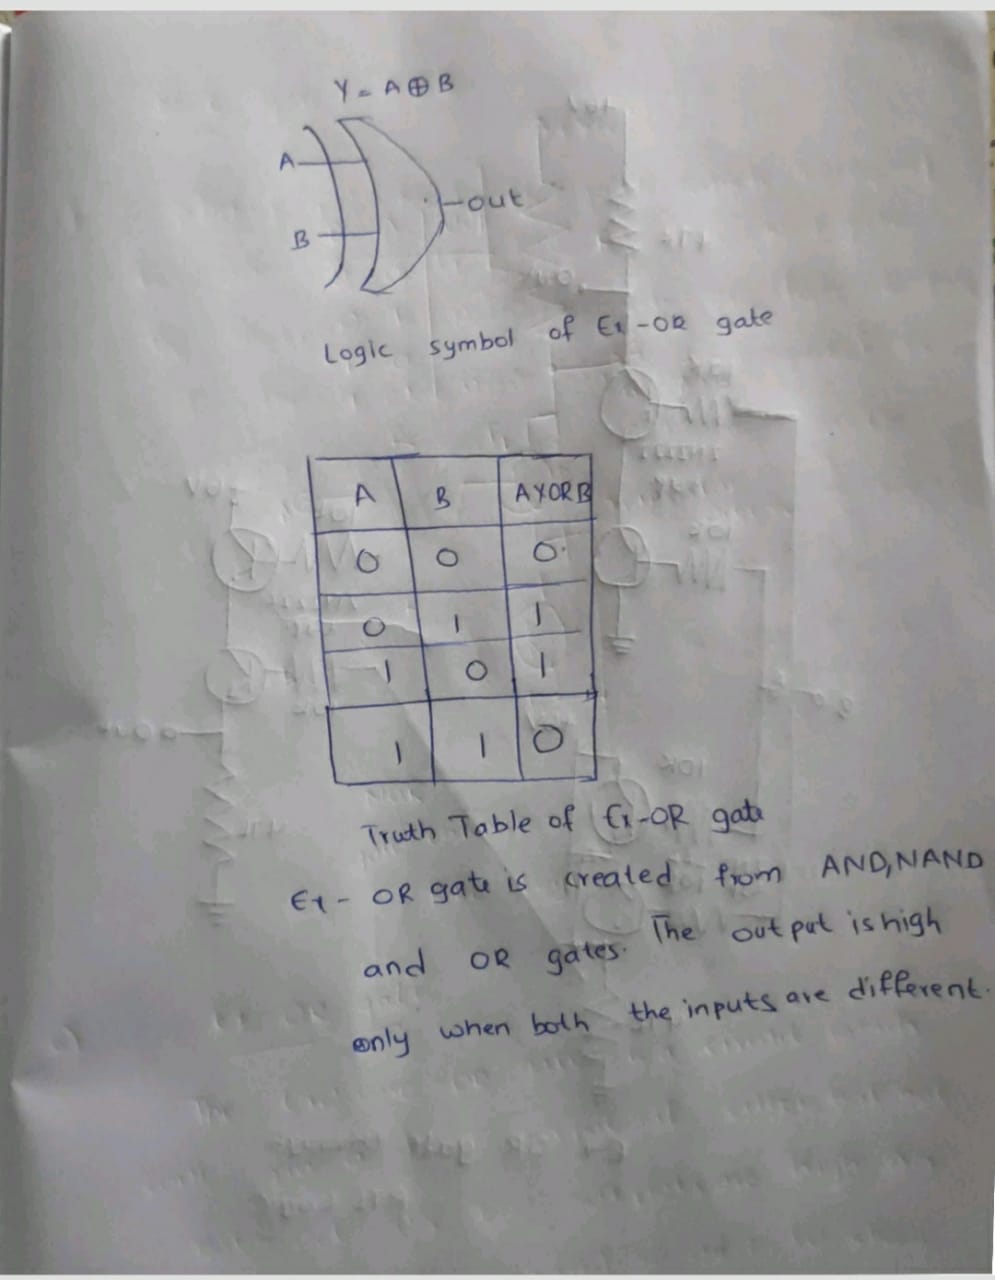 Y = A ⊕ B
A
out
B
Logic symbol of Ex-OR gate
A B A XOR B
0 0 0
0 1 1
1 0 1
1 1 0
Truth Table of Ex-OR gate
Ex-OR gate is created from AND, NAND
and OR gates. The output is high
only when both the inputs are different.